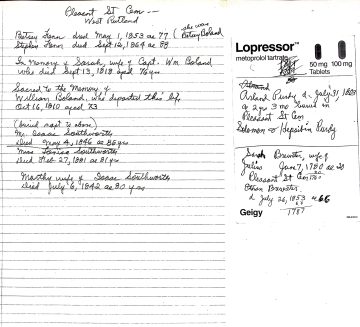 Pleasant St Cem
West Rutland
Betsey Fenn died May 1, 1853 ae 77 (she was Betsey Boland
Stephen Fenn, died Sept 16, 1864 ae 88
In Memory of Sarah, wife of Capt. Wm. Boland
who died Sept 13, 1818 aged 76 yrs
Sacred to the Memory of
William Boland, who departed this life
Oct 16, 1810 aged 73
(buried next to above)
Mr. Isaac Southworth
Died May 4, 1846 ae 86 yrs
Miss Southworth
Died Feb 27, 1881 ae 81 yrs
Marthy wife of Isaac Southworth
Died July 6, 1842 ae 80 yrs
Lopressor™
metoprolol tartrate
50 mg 100 mg
Tablets
Purdy d. July 31,
a 2 yrs 3 mo buried in
Pleasant St Cem
Solomon & Purdy
Sarah Brewster, wife of
June 7, 1780 ae 20
Pleasant St Cem
Brewster,
d July 26, 1853 ae 66
1787
Geigy